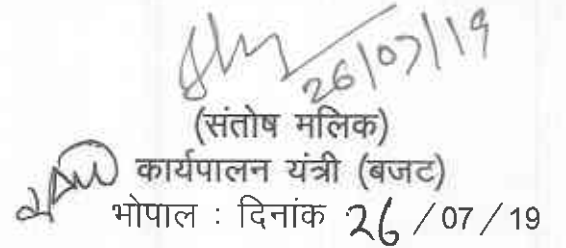 26/07/19
(संतोष मलिक)
कार्यपालन यंत्री (बजट)
भोपाल : दिनांक 26 / 07 / 19